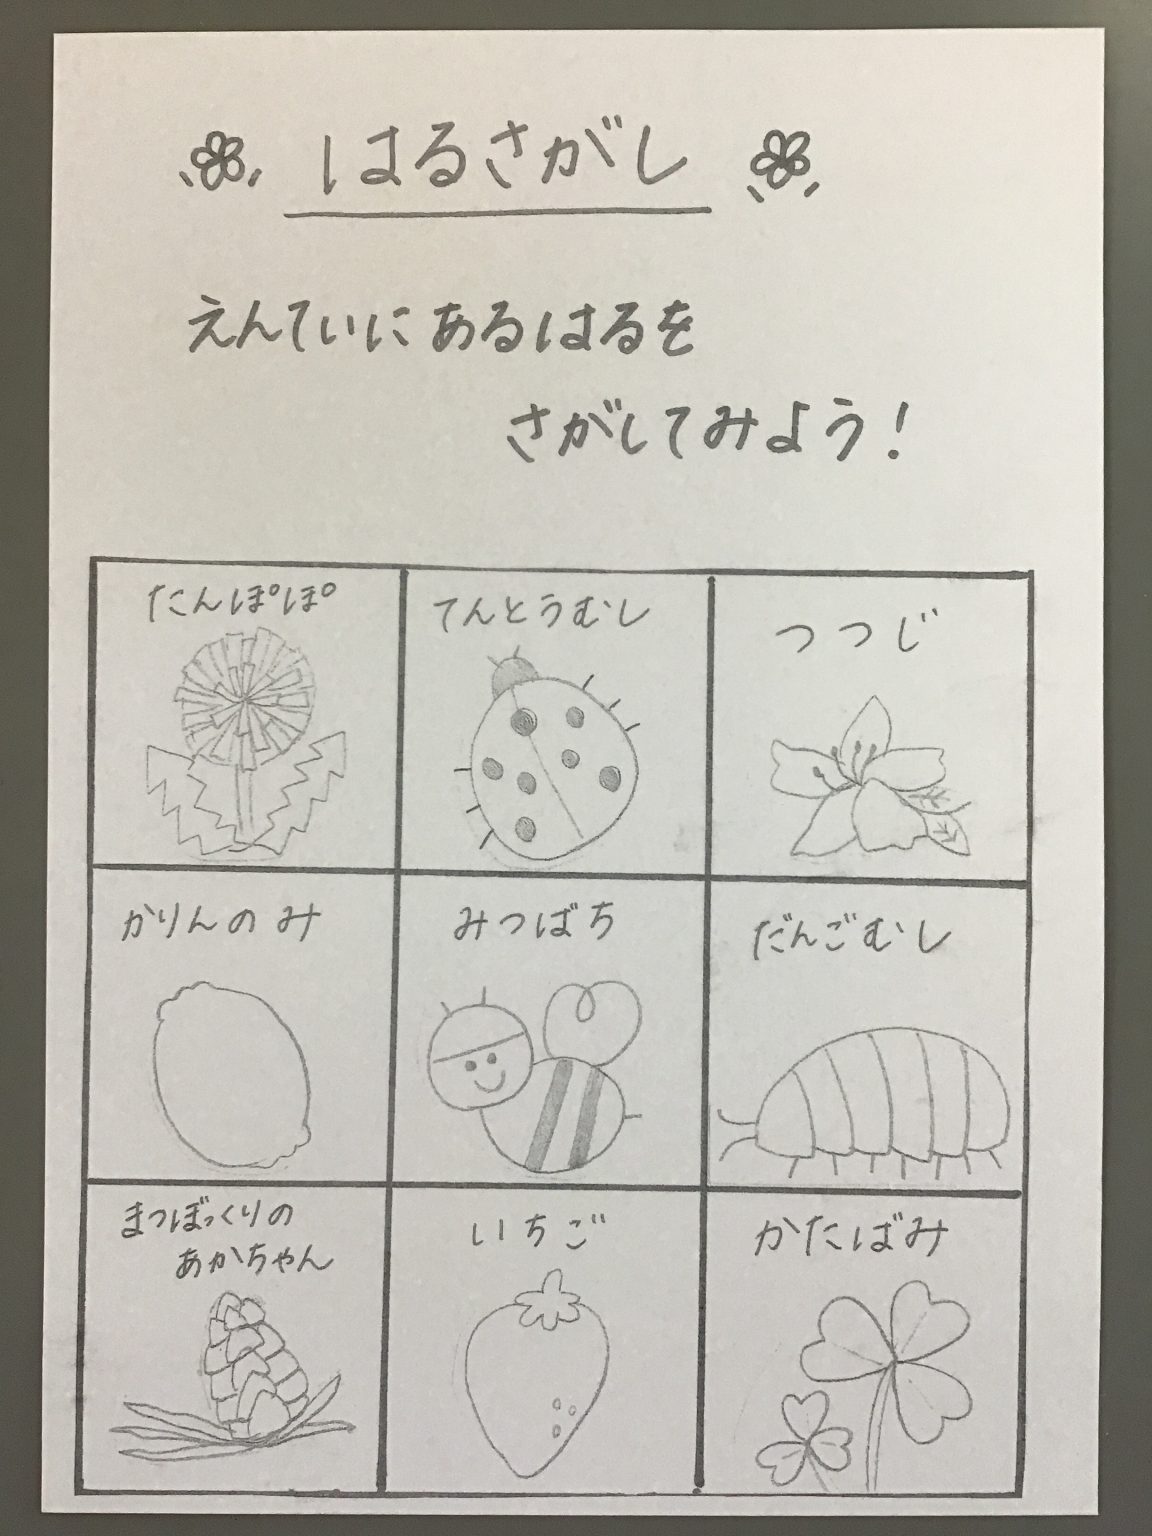 はるさがし
えんていにあるはるを
さがしてみよう！
たんぽぽ
てんとうむし
つつじ
かりんのみ
みつばち
だんごむし
まつぼっくりの
あかちゃん
いちご
かたばみ